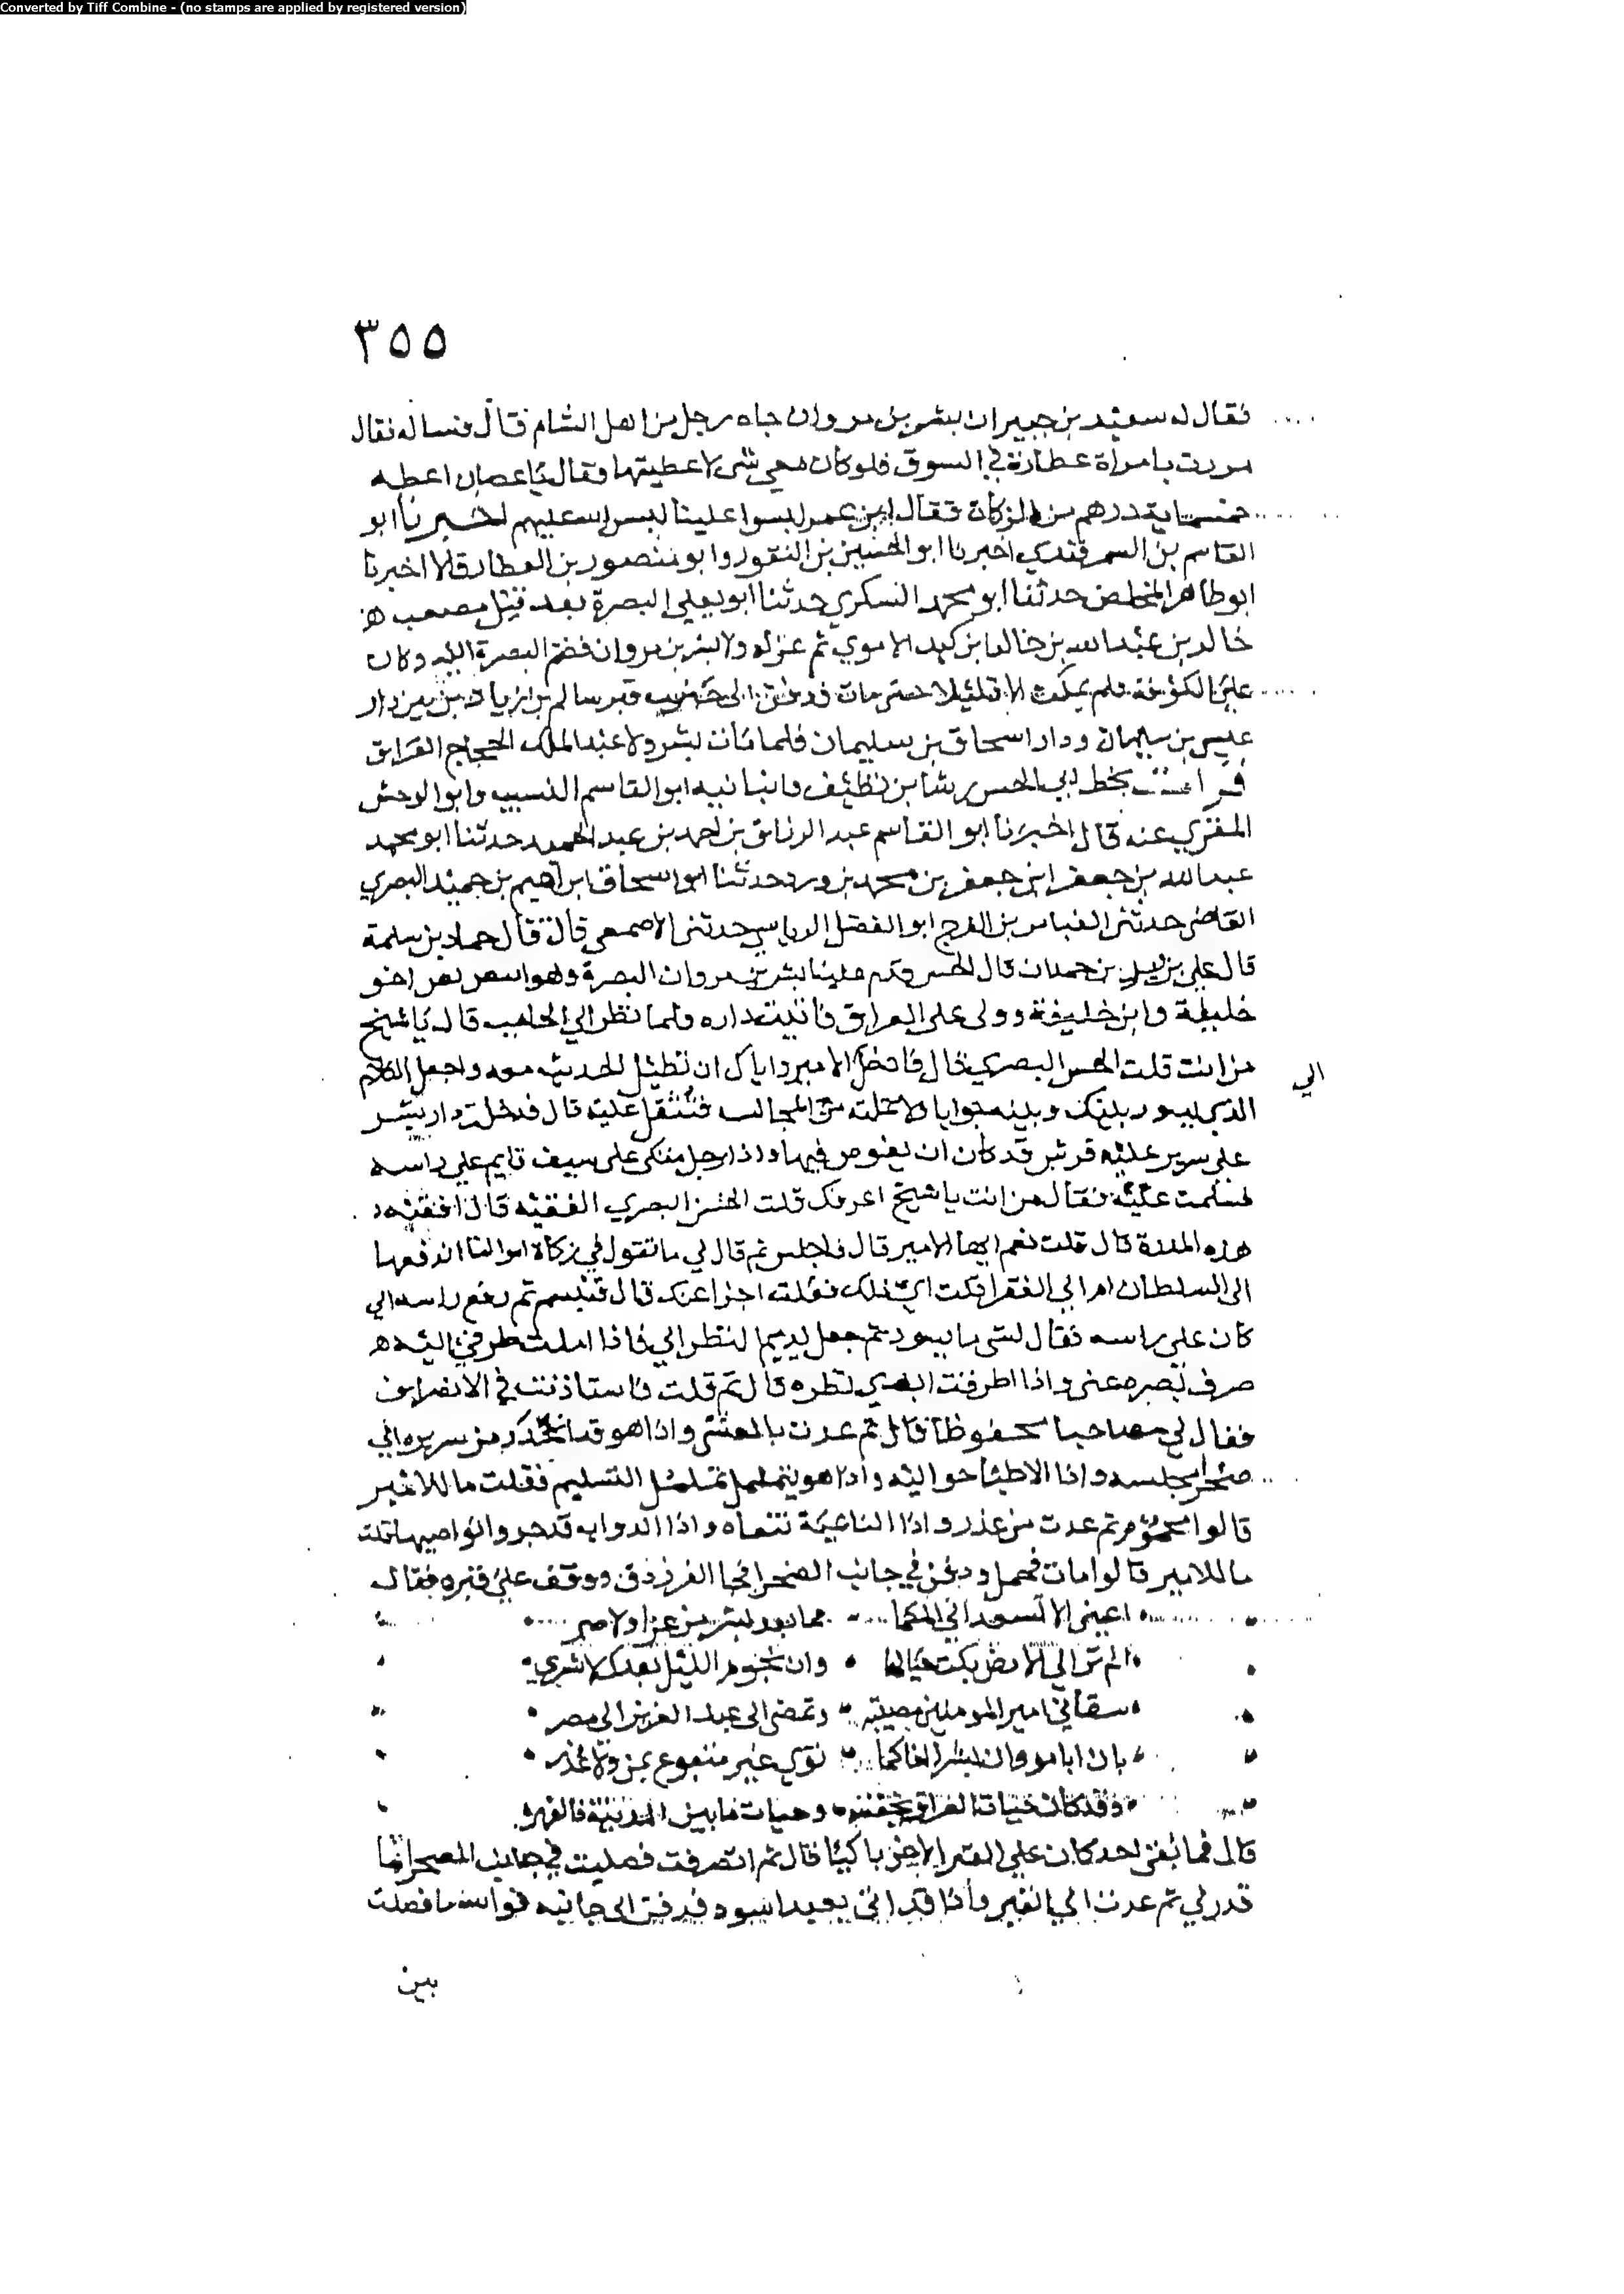 Converted by Tiff Combine - (no stamps are applied by registered version)
٣٥٥
فقال له سعيد بن جبير ان بشر بن مروان جاه رجل من اهل الشام قال فساله فقال
مررت بامراة عطارة في السوق فلو كان معي شي لاعطيتها فقال يا اعطه
خمسماية درهم من الزكاة فقال ابن عمر لبسوا علينا لبس الله عليهم اخبرنا ابو
القاسم بن السمرقندي اخبرنا ابو الحسين بن النقور وابو منصور بن العطار قالا اخبرنا
ابو طاهر المخلص حدثنا ابو محمد السكري حدثنا ابو يعلى البصرة بعد قتل مصعب
خالد بن عبد الله بن خالد بن الاموي ثم عزله وولا بشر بن مروان فضم البصرة اليه وكان
على الكوفة فلم يمكث الا قليلا حتى مات فدفن الى قبر سالم بن زياد بين دار
عيسى بن سليمان ودار اسحاق بن سليمان فلما مات بشر ولا عبد الملك الحجاج العراق
قرات بخط ابي الحسن رشا بن نظيف وانبانيه ابو القاسم النسيب وابو الوحش
المقري عنه قال اخبرنا ابو القاسم عبد الرزاق بن احمد بن عبد الحميد حدثنا ابو محمد
عبد الله بن جعفر ابن جعفر بن محمد بن ورد حدثنا ابو اسحاق ابراهيم بن حميد البصري
القاضي حدثني العباس بن الفرج ابو الفضل الرياسي حدثني الاصمعي قال قال حماد بن سلمة
قال علي بن زيد بن جدعان قال الحسن قدم علينا بشر بن مروان البصرة وهو اخو
خليفة وابن خليفة وولى على العراق فاتيت داره فلما نظر الي الحاجب قال يا شيخ
من انت قلت الحسن البصري قال فادخل الامير واياك ان تطيل الحديث معه واجعل الكلام
الي
الذي يدور بينك وبينه جوابا ولا تمله من المجالسه فتثقل عليه قال فدخلت دار بشر
على سرير عليه فرش قد كان ان يغوص فيها واذا رجل متكي على سيف قايم على راسه
فسلمت عليه فقال من انت يا شيخ اعرفك قلت الحسن البصري الفقيه قال افقيه
هذه المدة قال قلت نعم ايها الامير قال فاجلس ثم قال لي ما تقول في زكاة اموالنا اندفعها
الى السلطان ام الى الفقرا قلت اي ذلك فعلت اجزا عنك قال فتبسم ثم رفع راسه الى
كان على راسه فقال لشي ما يسود ثم جعل يديم النظر الي فاذا املت طرفي اليه
صرف بصره عني واذا اطرقت ابدي نظره قال ثم قلت فاستاذنت في الانصراف
فقال لي مصاحبا محفوظا قال ثم عدت بالعشي واذا هو قد انحدر من سريره الي
صحن مجلسه واذا الاطبا حواليه واذا هو يتململ تململ السليم فقلت ما للامير
قالوا محموم ثم عدت من غد واذا الناعية تنعاه واذا الدواب قد جزوا نواصيها قلت
ما للامير قالوا مات فحمل ودفن في جانب الصحرا فجا الفرزدق ووقف على قبره فقال
اعيني الا تسعداني المكما فما بعد بشر من عزا ولا صبر
الم تر الى الارض بكت وان نجوم الليل بعدك لا تسري
امير المومنين مصيبة وتمضي الى عبد العزيز الى مصر
بان ابا مروان بشرا اخاكما ثوى غير متبوع بمن ولا غدر
وقد كان حيات العراق وحيات ما بين المدينة فالقهر
قال فما بقي احد كان على القبر الا خر باكيا قال ثم انصرفت فصليت في جانب الصحرا ما
قدر لي ثم عدت الى القبر واذا قد اتي بعبد اسود فدفن الى جانبه فوالله ما فصلت
بين